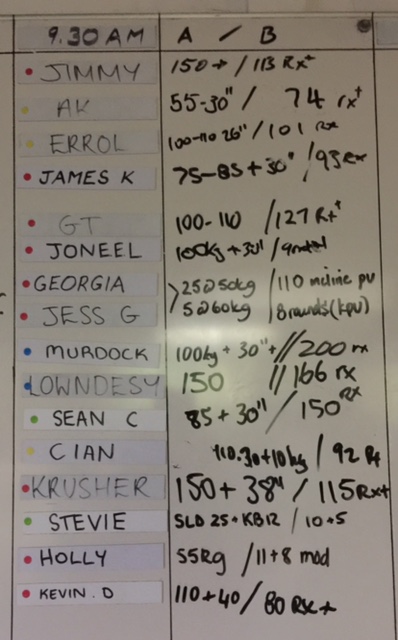 9.30 AM A / B
JIMMY 150+ / 113 Rx+
AK 55-30" / 74 rx+
ERROL 100-110 26" / 101 rx
JAMES K 75-85+30" / 93 Rx
GT 100-110 / 127 Rx+
JONEEL 100kg + 30" /
GEORGIA 25@50kg / 110 incline pu
JESS G 5@60kg / 8 rounds (kpu)
MURDOCK 100kg + 30"+ // 200 rx
LOWNDESY 150 // 166 rx
SEAN C 85 + 30" / 150 RX
CIAN 110.30+10kg / 92 Rx
KRUSHER 150 + 38" / 115 Rx+
STEVIE SLD 25 + KB12 / 10+5
HOLLY 55kg / 11+8 mod
KEVIN.D 110+40 / 80 RX+